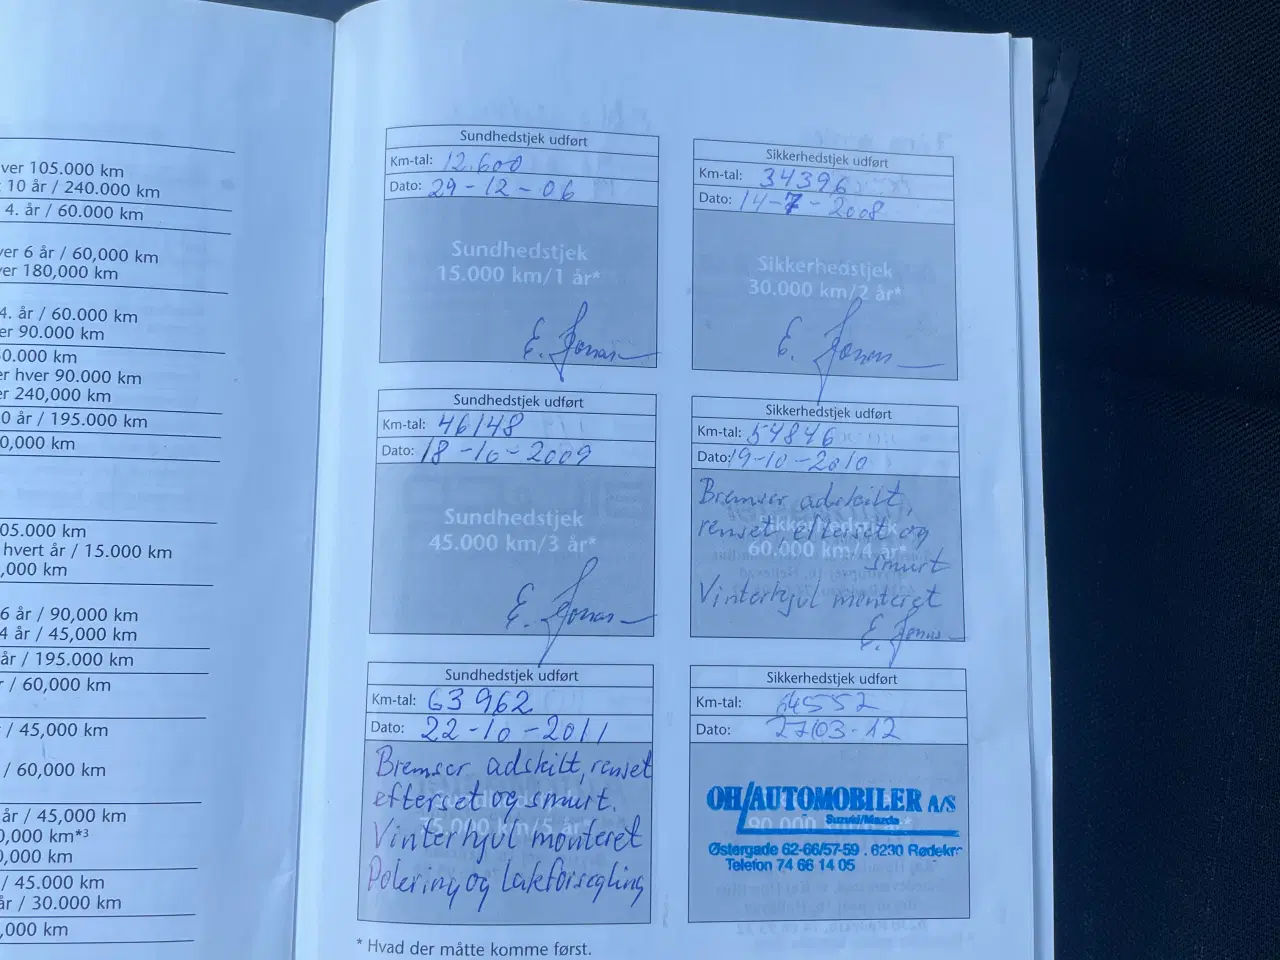 ver 105.000 km
10 år / 240.000 km
4. år / 60.000 km
ver 6 år / 60,000 km
ver 180,000 km
4. år / 60.000 km
er 90.000 km
0.000 km
er hver 90.000 km
er 240,000 km
0 år / 195.000 km
0,000 km
05.000 km
hvert år / 15.000 km
,000 km
6 år / 90,000 km
4 år / 45,000 km
år / 195.000 km
r / 60,000 km
/ 45,000 km
/ 60,000 km
år / 45,000 km
0,000 km*³
0,000 km
/ 45.000 km
år / 30.000 km
,000 km
Sundhedstjek udført
Km-tal: 12.600
Dato: 29-12-06
Sundhedstjek
15.000 km/1 år*
E. Jonas
Sikkerhedstjek udført
Km-tal: 34396
Dato: 14-7-2008
Sikkerhedstjek
30.000 km/2 år*
E. Jonas
Sundhedstjek udført
Km-tal: 46148
Dato: 18-10-2009
Sundhedstjek
45.000 km/3 år*
E. Jonas
Sikkerhedstjek udført
Km-tal: 54846
Dato: 19-10-2010
Bremser adskilt,
renset, efterset og
smurt
Sikkerhedstjek
60.000 km/4 år*
Vinterhjul monteret
E. Jonas
Sundhedstjek udført
Km-tal: 63962
Dato: 22-10-2011
Bremser adskilt, renset
efterset og smurt.
75.000 km/5 år*
Vinterhjul monteret
Polering og Lakforsegling
Sikkerhedstjek udført
Km-tal: 64552
Dato: 27/03-12
OH/AUTOMOBILER A/S
Suzuki/Mazda
90.000 km/6 år*
Østergade 62-66/57-59 . 6230 Rødekro
Telefon 74 66 14 05
* Hvad der måtte komme først.